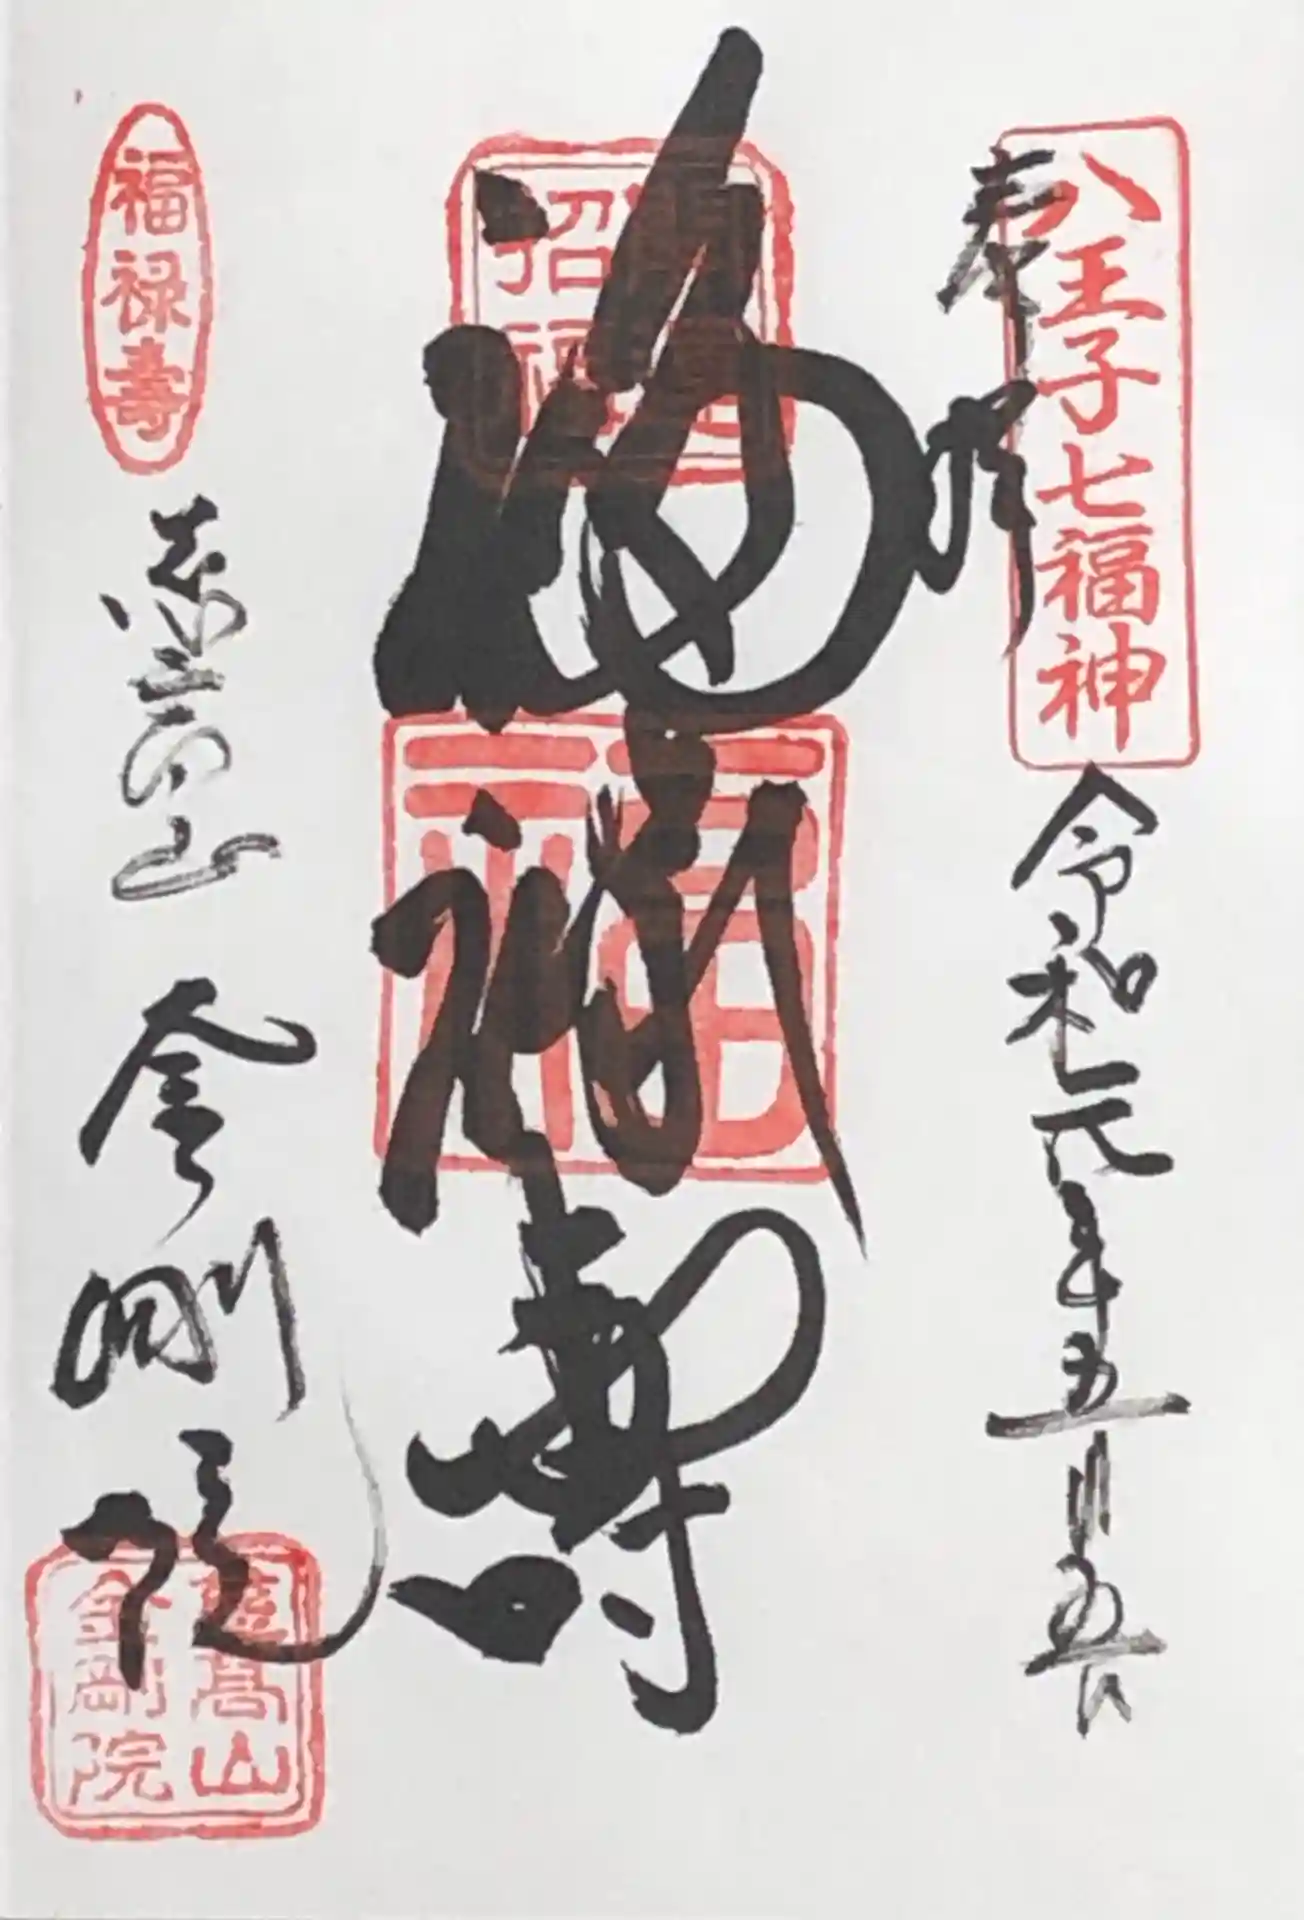 八王子七福神
奉拝
令和元年五月五日
招福
開運
福禄寿
福禄
福禄壽
慈高山
金剛院
慈高山
金剛院